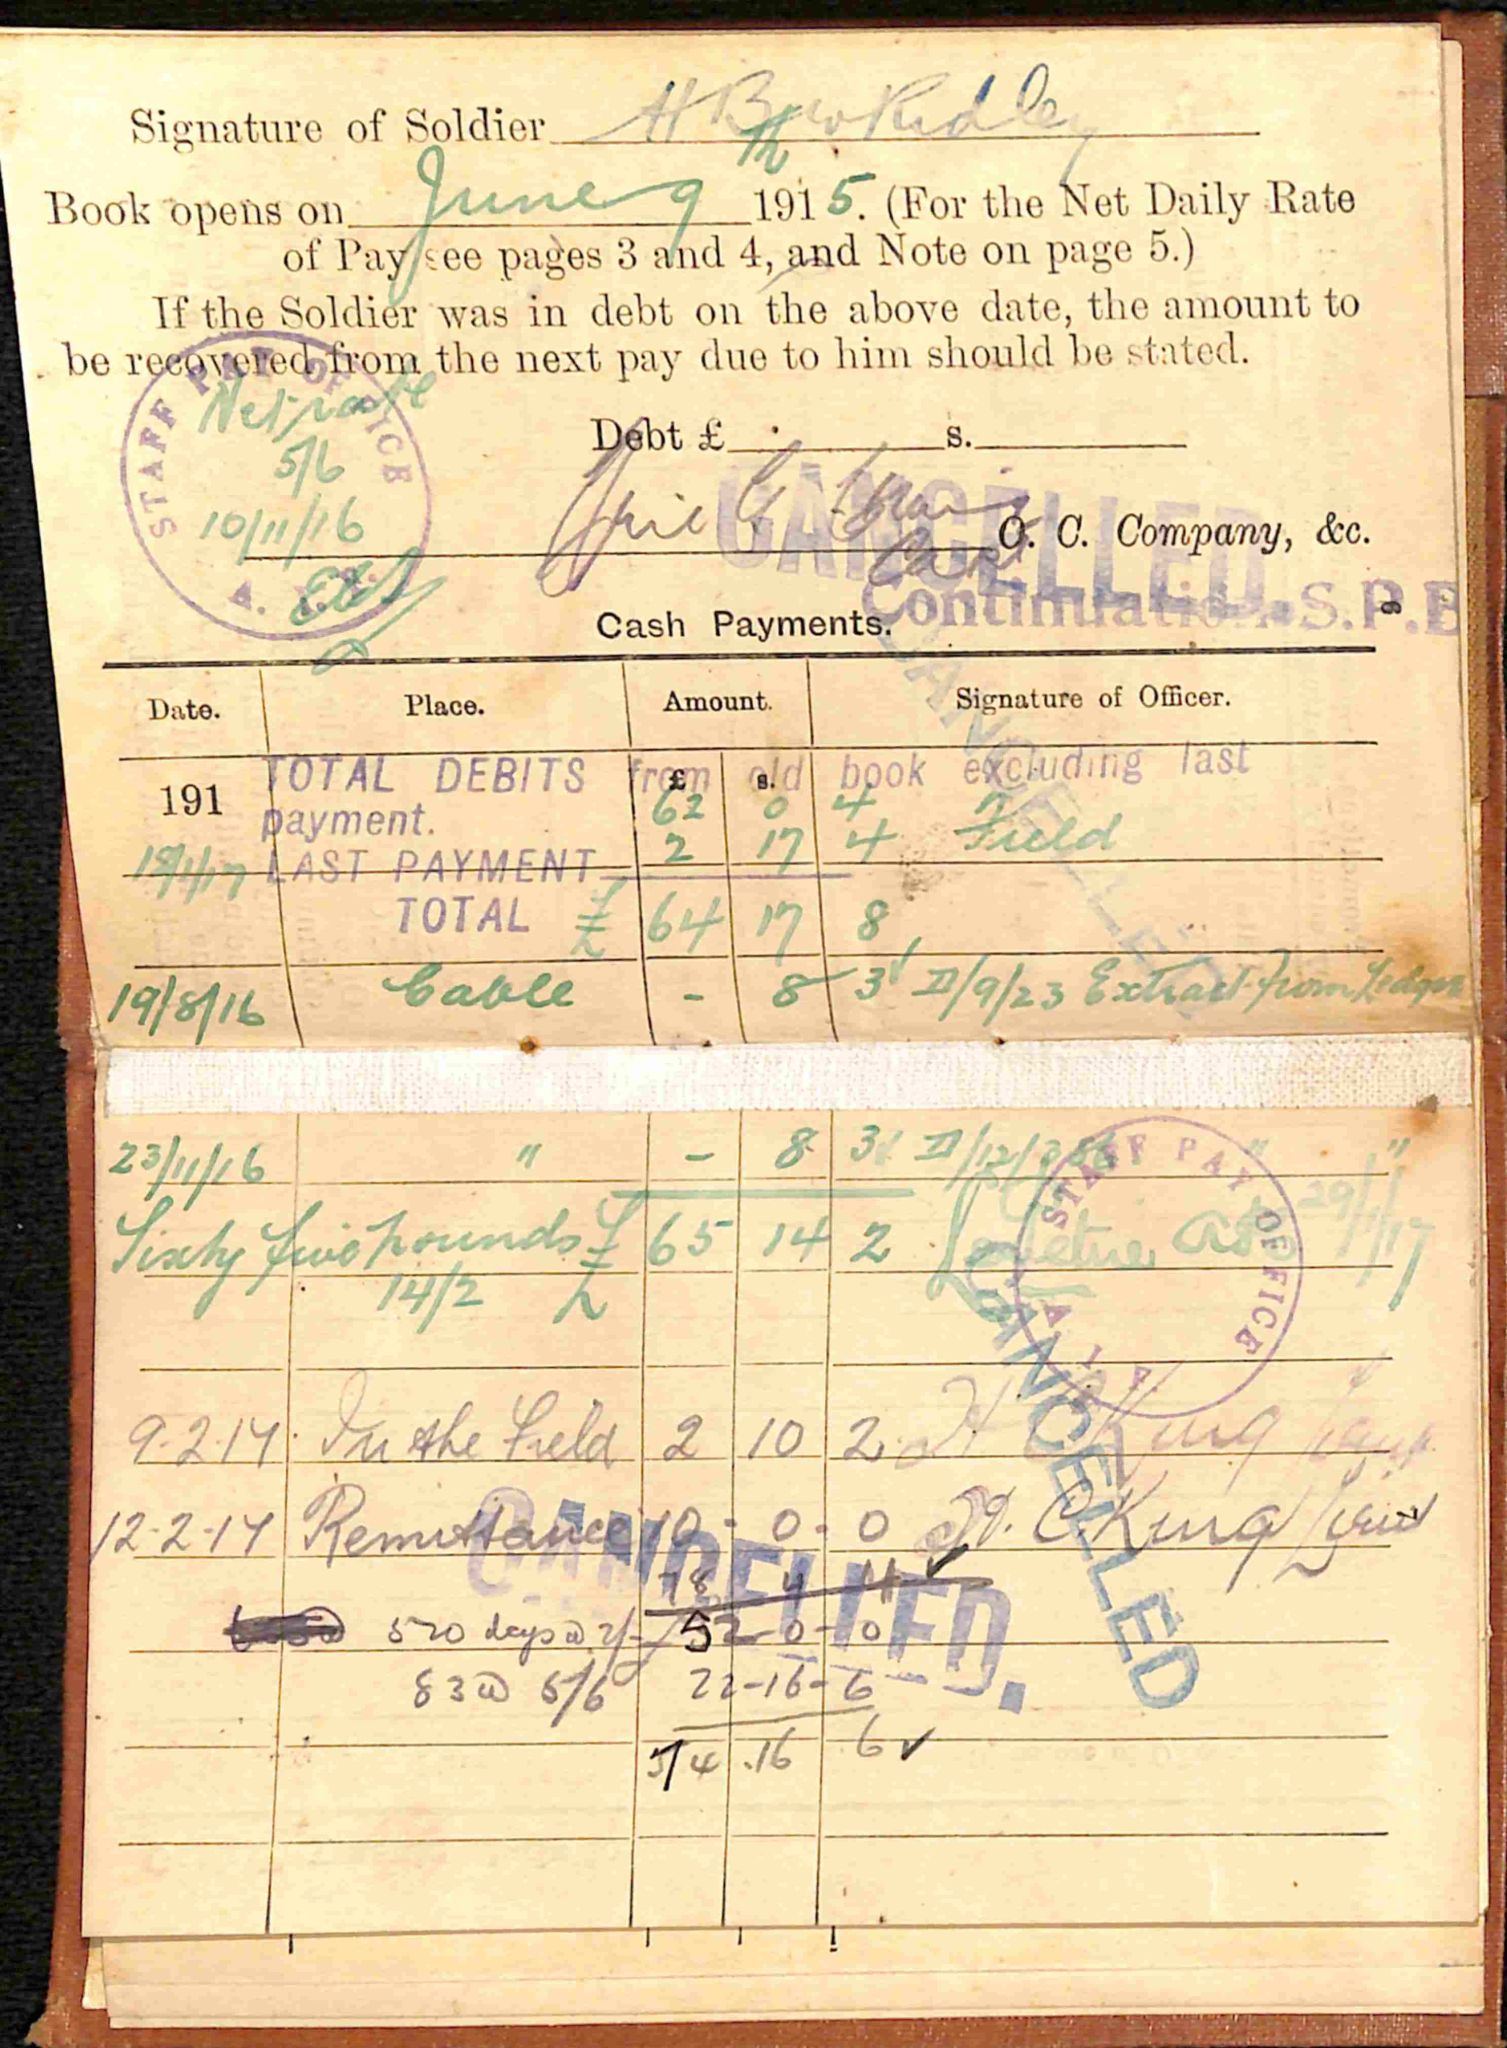 Signature of Soldier H B Ridley
Book opens on June 9th 1915. (For the Net Daily Rate
of Pay see pages 3 and 4, and Note on page 5.)
If the Soldier was in debt on the above date, the amount to
be recovered from the next pay due to him should be stated.
STAFF PAY OFFICE
A.I.F.
Net rate
5/6
10/11/16
Debt £ s.
Capt O. C. Company, &c.
CANCELLED.
Continuation S.P.B
9
Cash Payments.
CANCELLED
Date. Place. Amount. Signature of Officer.
191 TOTAL DEBITS from old book excluding last
£ s.
payment. 62 0 4
18/1/17 LAST PAYMENT 2 17 4 Field
TOTAL £ 64 17 8
19/8/16 Cable - 8 3 II/9/23 Extract from Ledger
23/11/16 " - 8 3 II/12/356 " "
Sixty five pounds £ 65 14 2 29/1/17
14/2
STAFF PAY OFFICE
A.I.F.
CANCELLED
9.2.17 In the Field 2 10 2 H C King Lieut
12-2-17 Remittance 10 - 0 - 0 H. C. King Lieut
CANCELLED.
78 4 4
520 days @ 2/- 52 - 0 - 0
83 @ 5/6 22 - 16 - 6
74 . 16 . 6